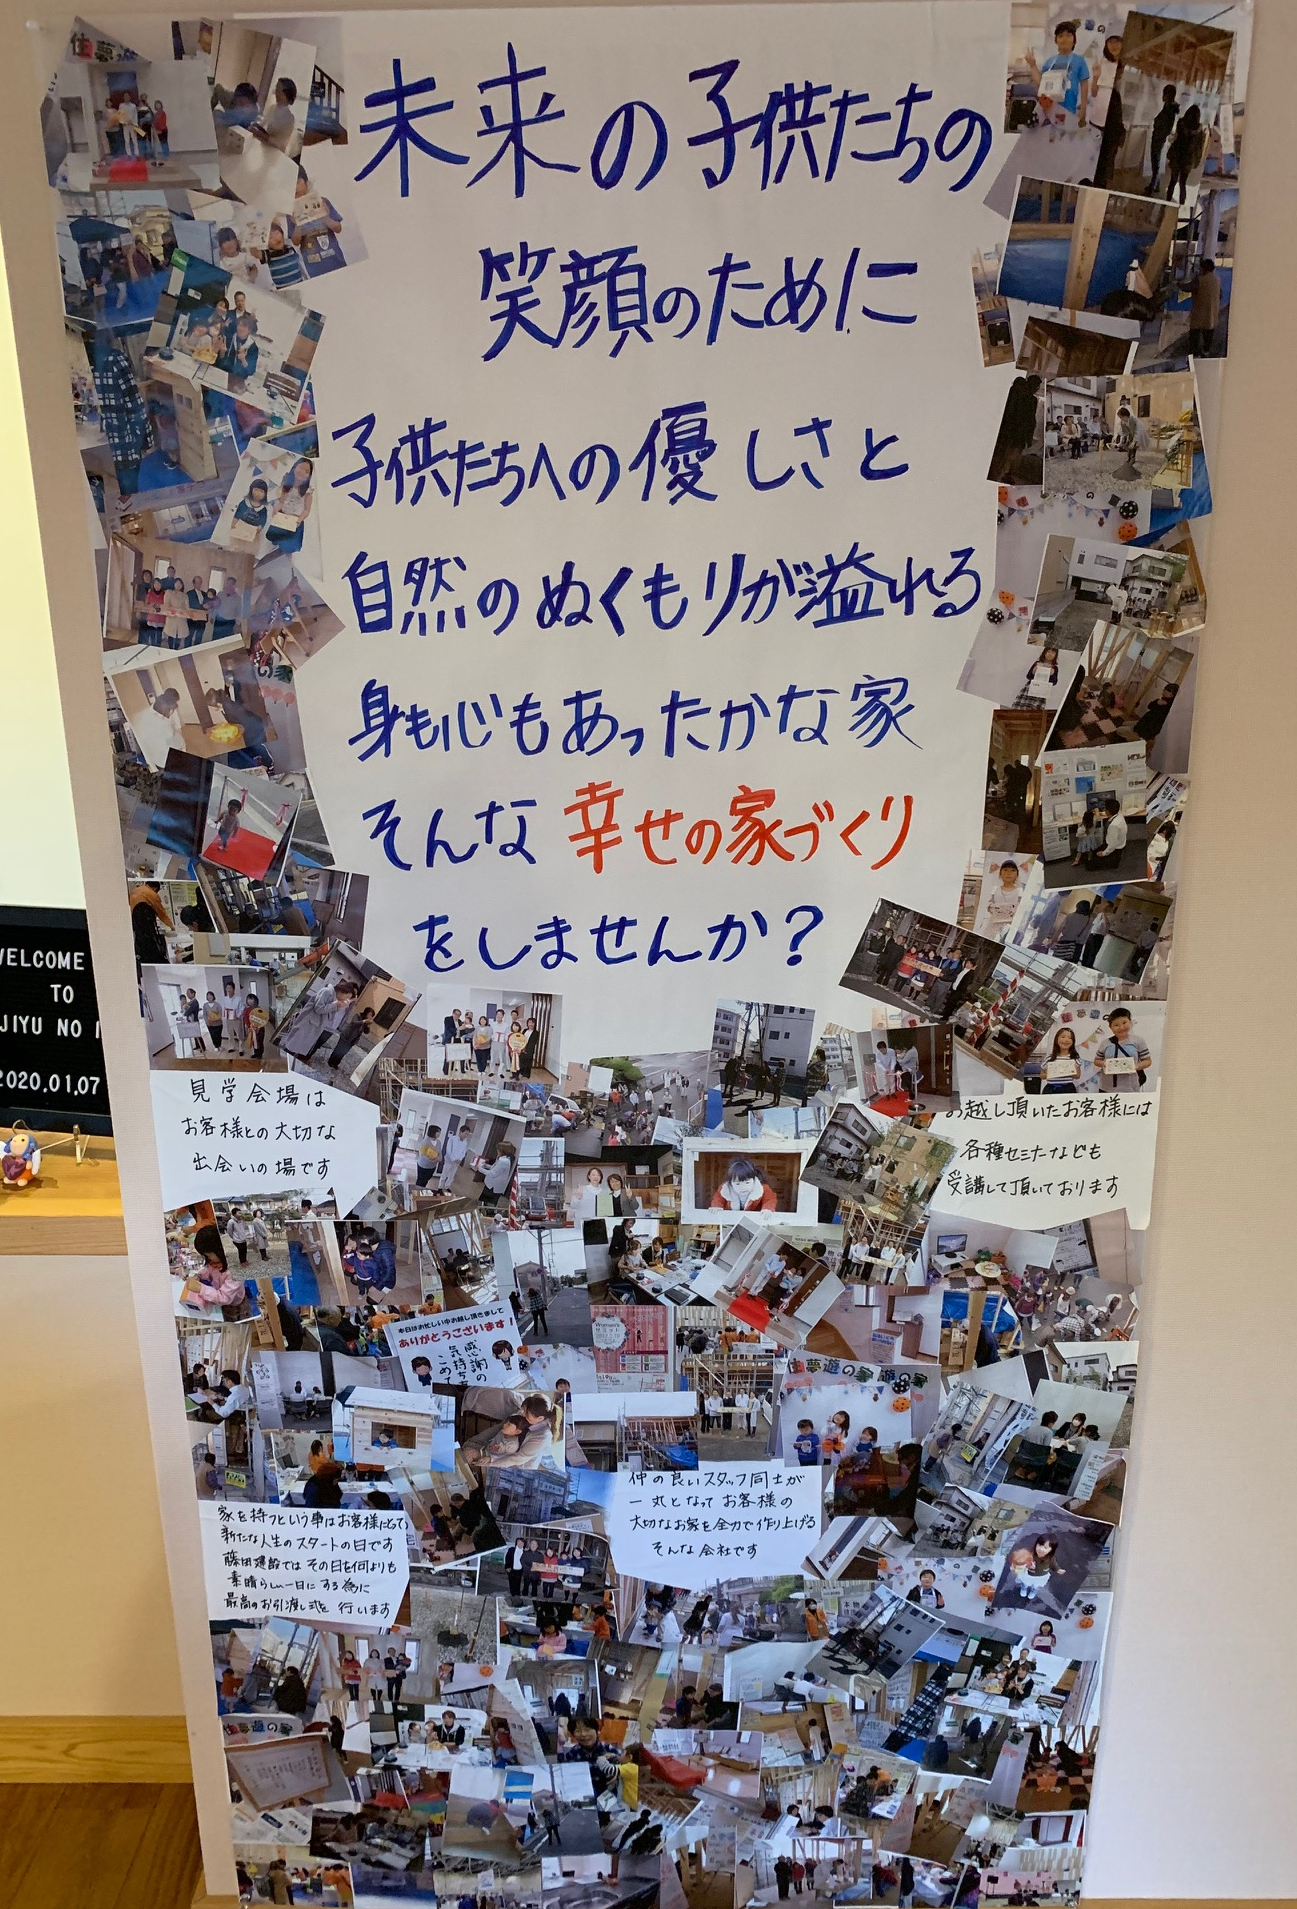 未来の子供たちの
笑顔のために
子供たちへの優しさと
自然のぬくもりが溢れる
身も心もあったかな家
そんな幸せの家づくり
をしませんか？
WELCOME
TO
JIYU NO
2020.01.07
見学会場は
お客様との大切な
出会いの場です
お越し頂いたお客様には
各種セミナーなども
受講して頂いております
本日はお忙しい中お越し頂きまして
ありがとうございます！
感謝の
気持ちを
こめて
住夢遊の家
仲の良いスタッフ同士が
一丸となってお客様の
大切なお家を全力で作り上げる
そんな会社です
家を持つという事はお客様にとって
新たな人生のスタートの日です
藤田建設ではその日を何よりも
素晴らしい一日にする為に
最高のお引渡し式を行います
住夢遊の家